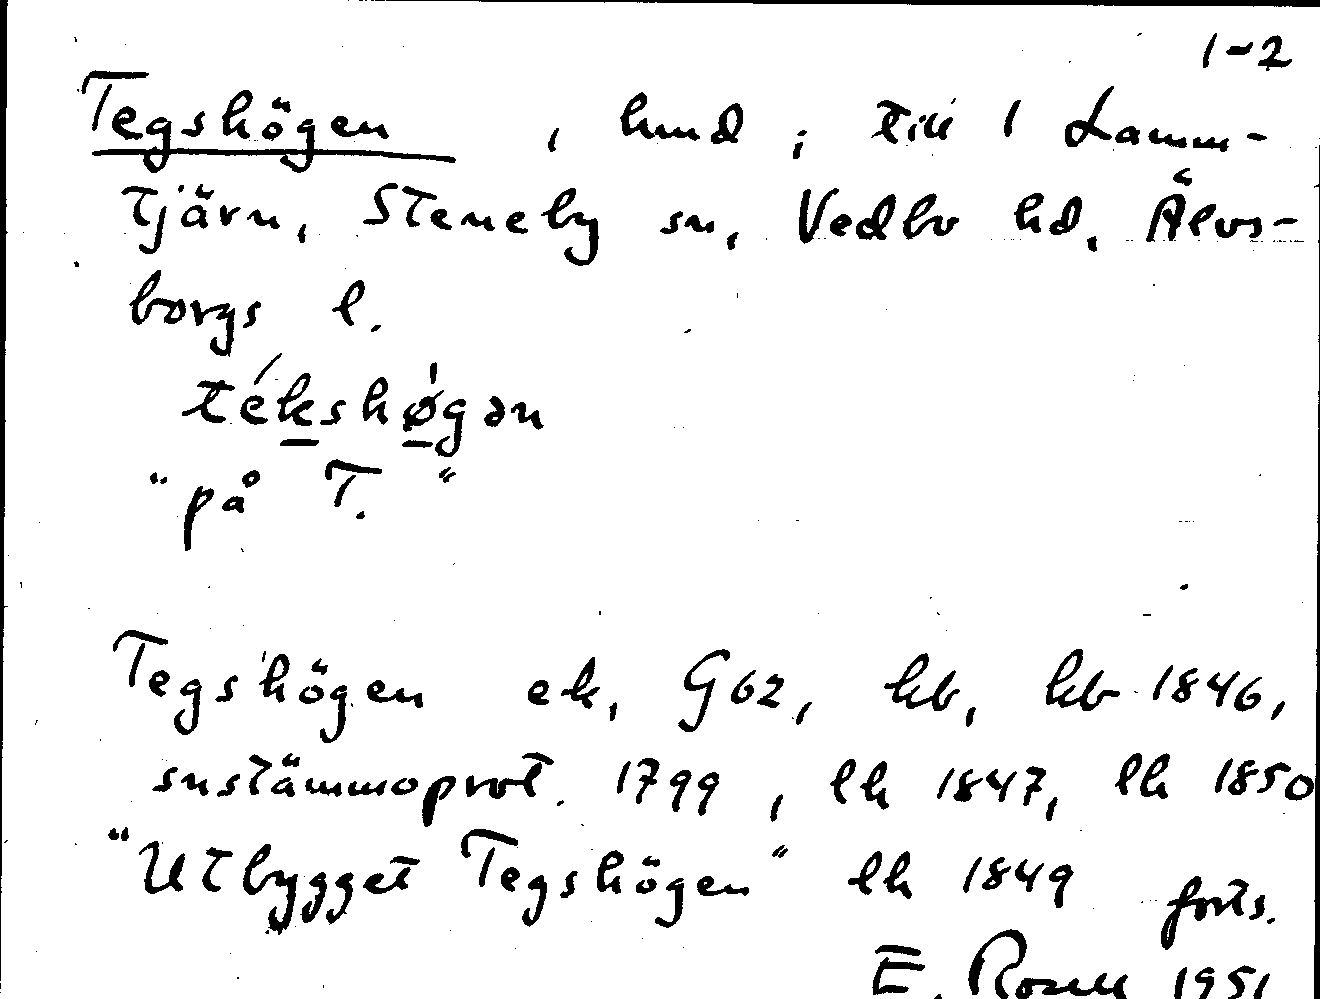 1-2
Tegshögen, hmd; till 1 Lamm-
tjärn, Steneby sn, Vedbo hd, Älvs-
borgs l.
tékshø̀gən
"på T."
Tegshögen ek, G62, kb, kb 1846,
snstämmoprot. 1799, lh 1847, lh 1850
"Utbygget Tegshögen" lh 1849 forts.
E. Rosell 1951